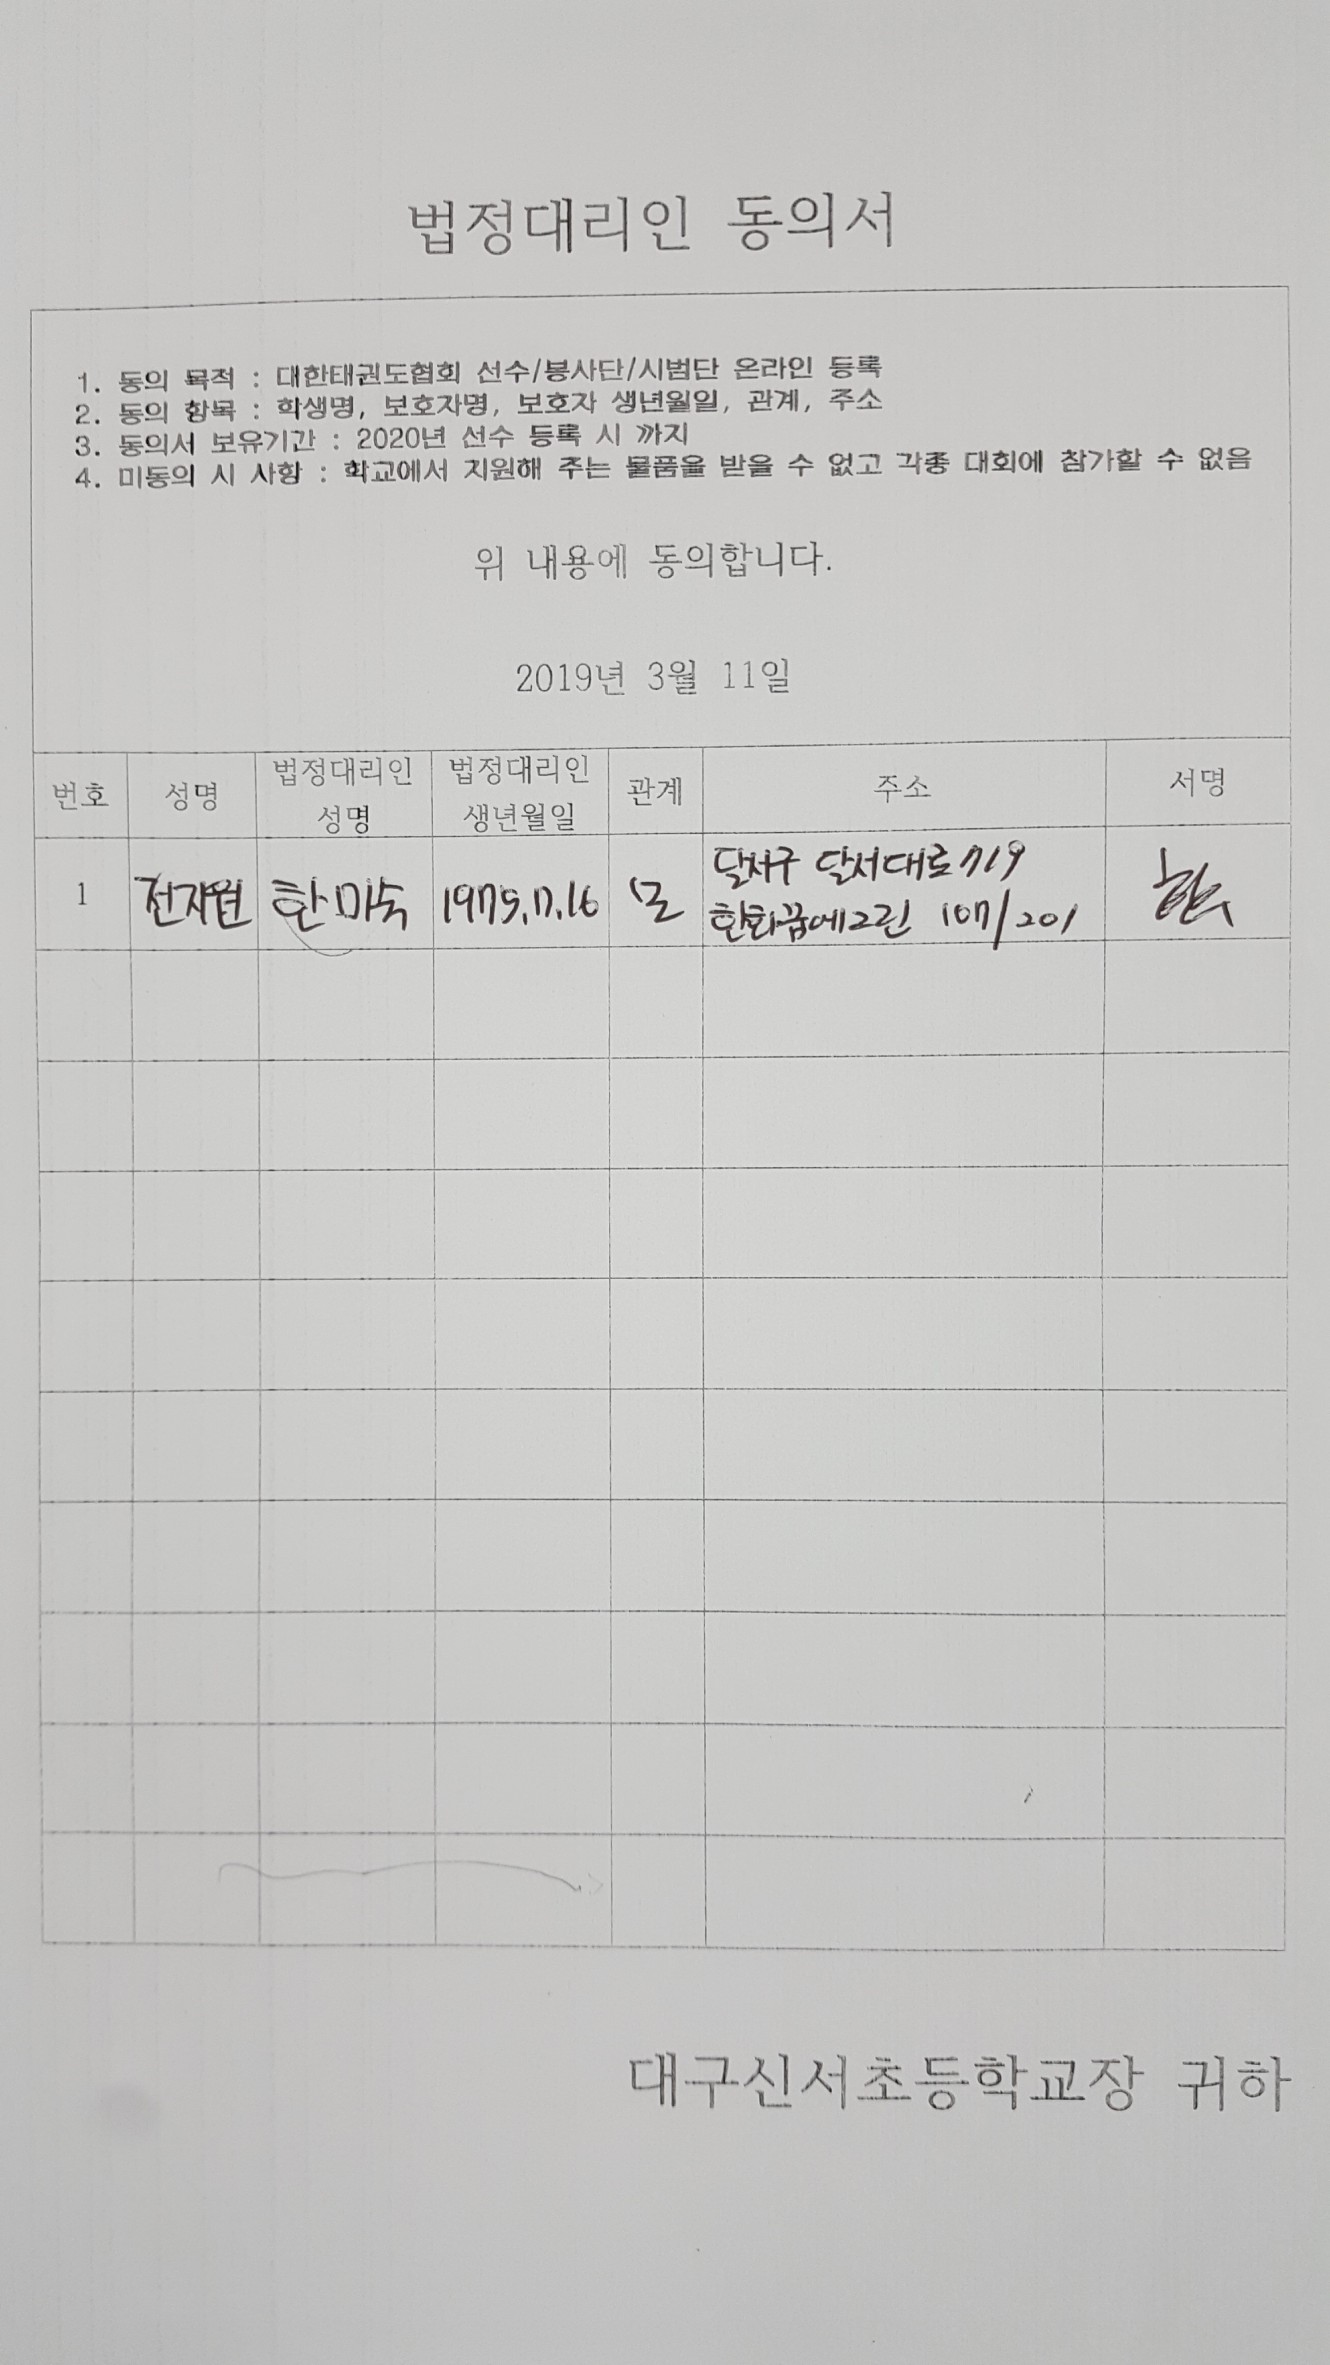 법정대리인 동의서
1. 동의 목적 : 대한태권도협회 선수/봉사단/시범단 온라인 등록
2. 동의 항목 : 학생명, 보호자명, 보호자 생년월일, 관계, 주소
3. 동의서 보유기간 : 2020년 선수 등록 시 까지
4. 미동의 시 사항 : 학교에서 지원해 주는 물품을 받을 수 없고 각종 대회에 참가할 수 없음
위 내용에 동의합니다.
2019년 3월 11일
번호 성명 법정대리인 성명 법정대리인 생년월일 관계 주소 서명
1 전지원 한미숙 1975.7.16 모 달서구 달서대로 719
한화꿈에그린 107/201
대구신서초등학교장 귀하